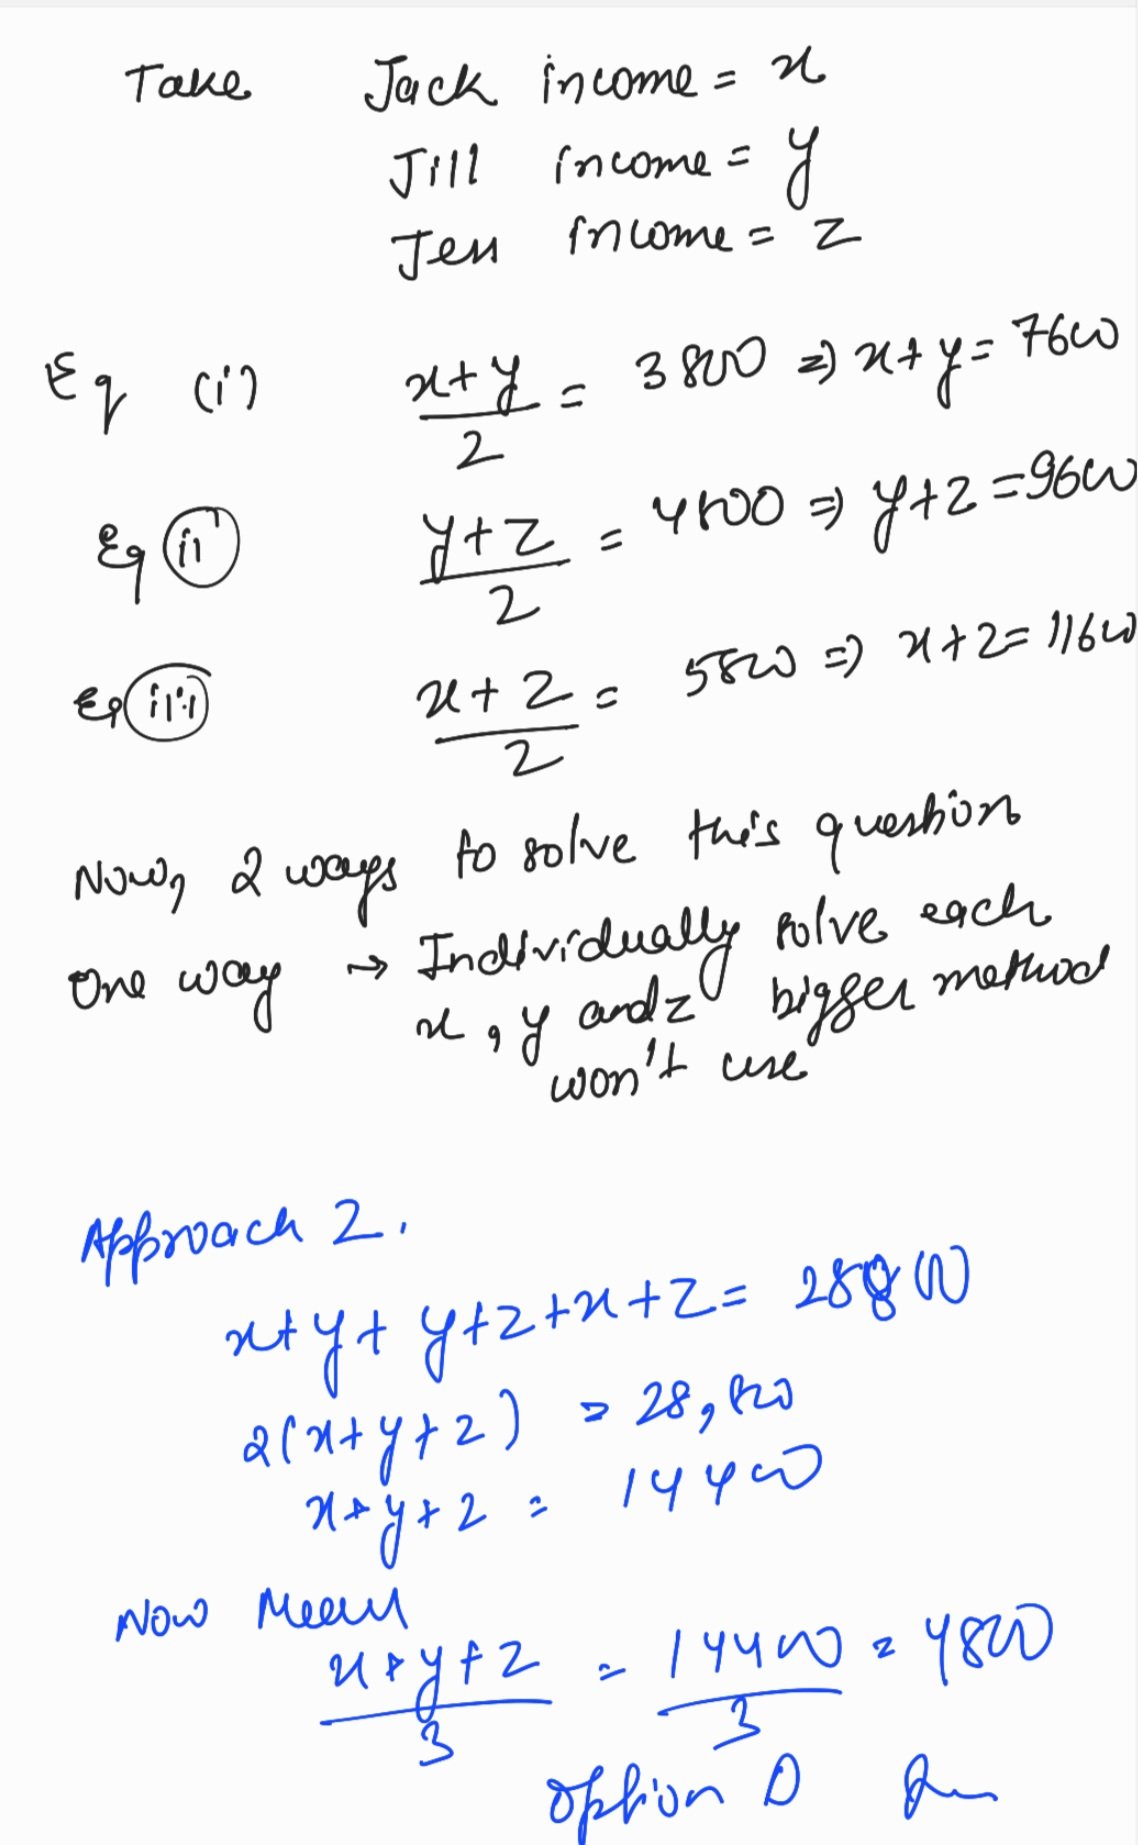 Take Jack income = x
Jill income = y
Jen income = z
Eq (i) x+y/2 = 3800 ⇒ x+y = 7600
Eq (ii) y+z/2 = 4800 ⇒ y+z = 9600
Eq (iii) x+z/2 = 5800 ⇒ x+z = 11600
Now, 2 ways to solve this question
One way → Individually solve each
x, y and z bigger method
won't use
Approach 2.
x+y+y+z+x+z = 28800
2(x+y+z) = 28,800
x+y+z = 14400
Now Mean
x+y+z/3 = 14400/3 = 4800
option D